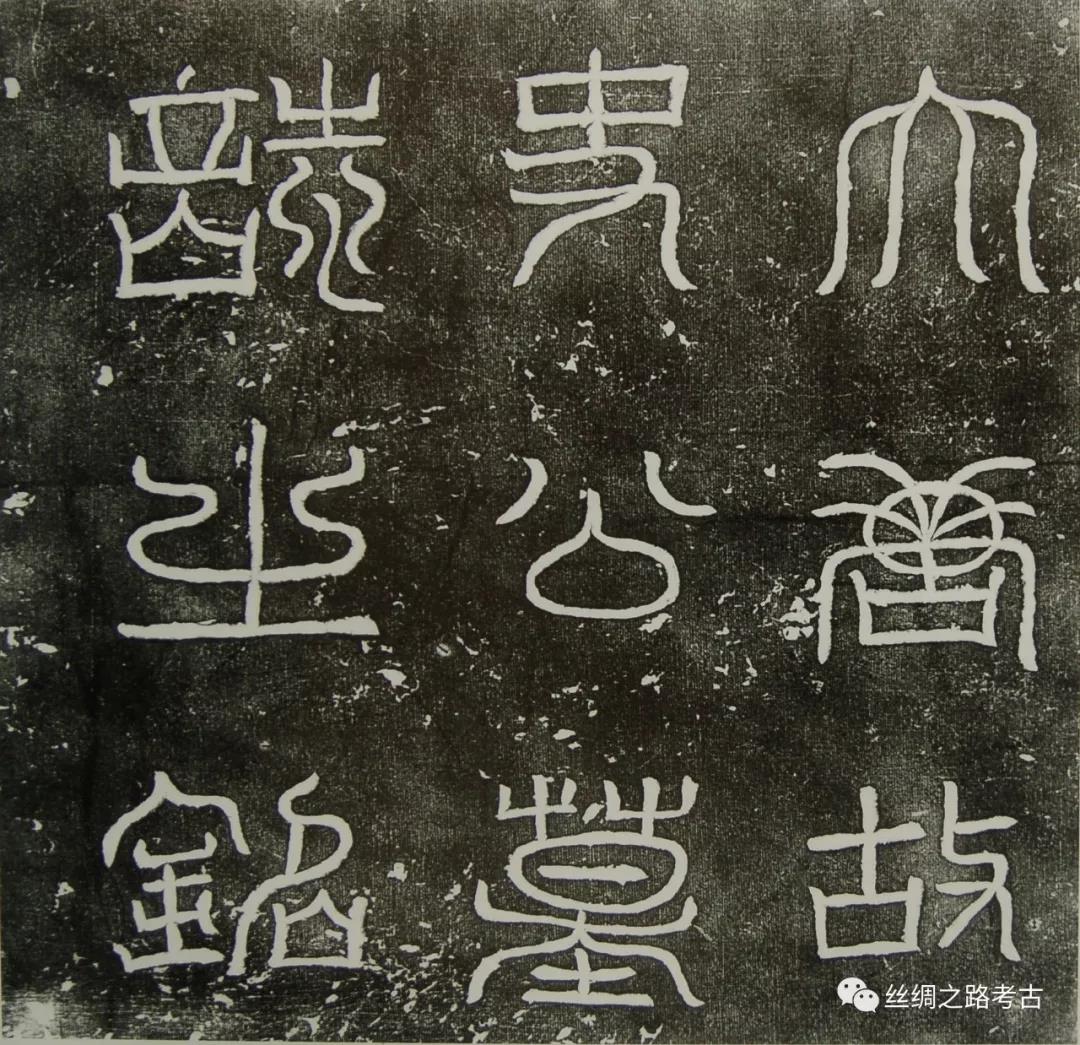 大唐故
史公墓
誌之銘
丝绸之路考古